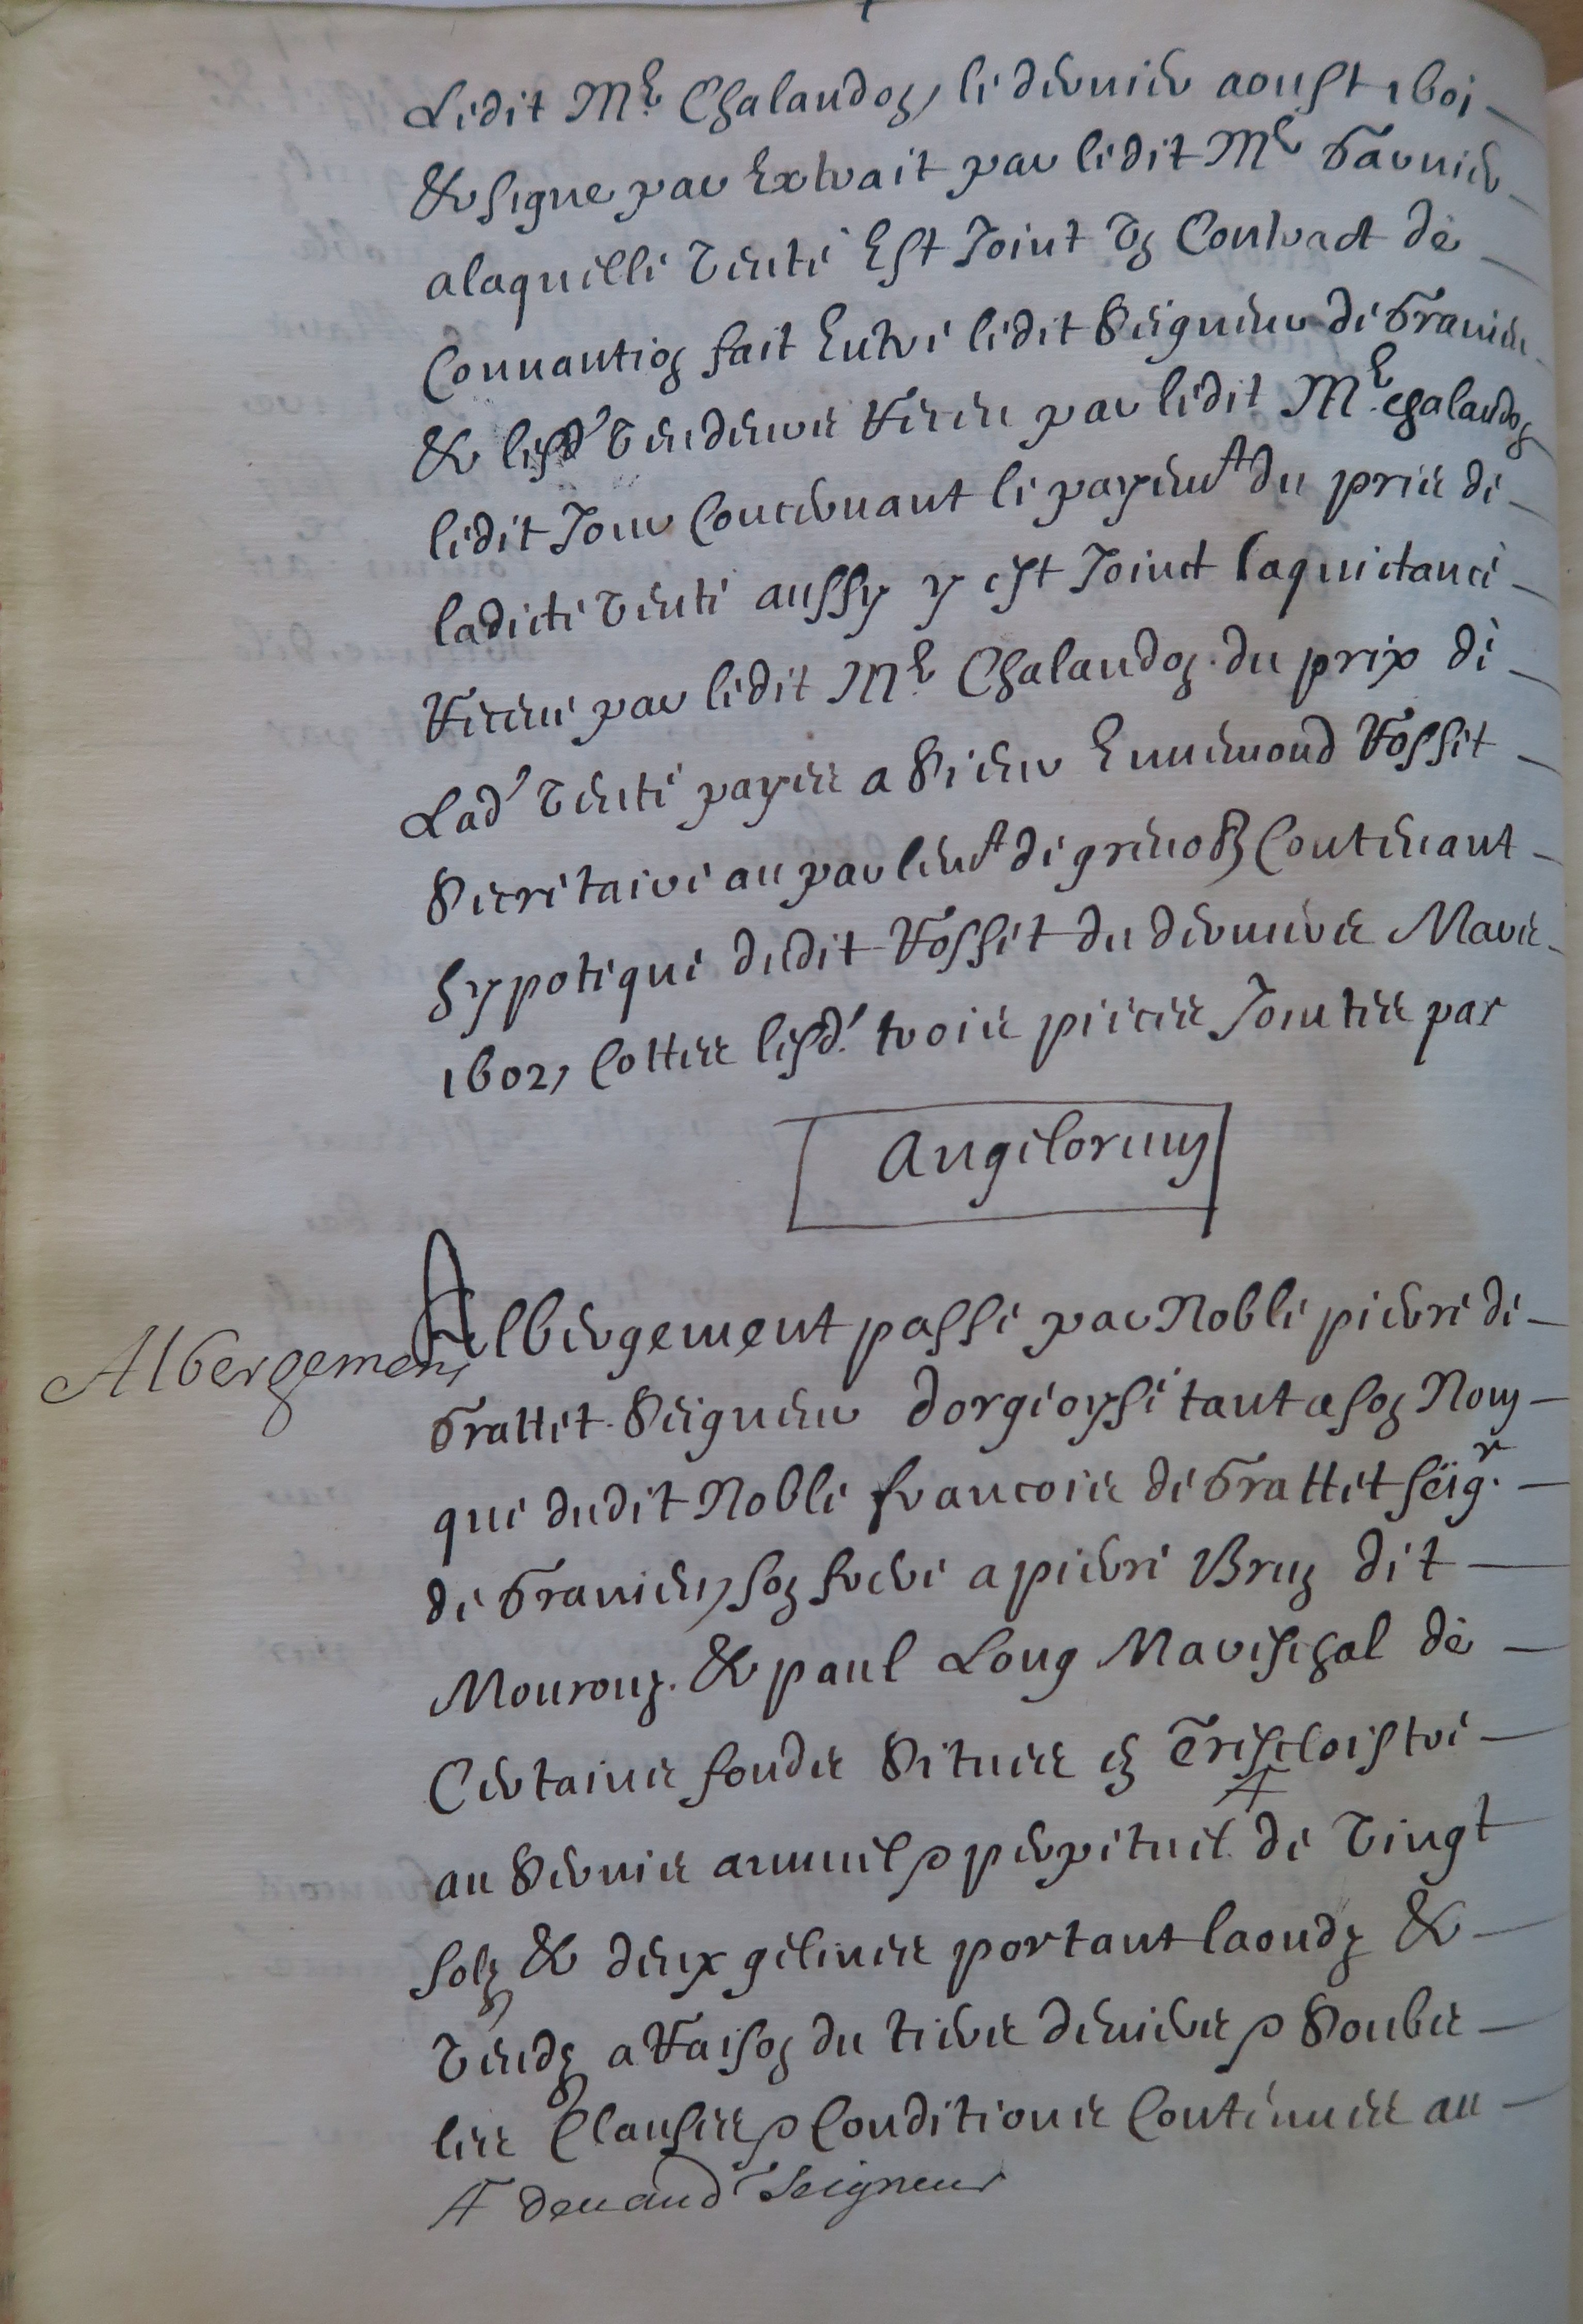 Ledit Mᵉ Chalandon, le dernier aoust 1601
& signe par Extrait par ledit Mᵉ Garnier
alaquelle vente Est Joint vn Contract de
Conuantion fait Entre ledit Seigneur de Granieu
& lesd' vendeurs Receu par ledit Mᵉ chalandon
ledit Jour Concernant le payemᵗ du pris de
ladicte vente aussy y est Joinct laquictance
Receue par ledit Mᵉ Chalandon du prix de
Lad' vente payee a Sieur Ennemond Rosset
Secretaire au parlemᵗ de grenoᵇ Contenant
hypoteque dudit Rosset du dernier Mars
1602, Cottees lesd' trois pieces Jointes par
Angelorum
Albergement
Albergement passé par Noble pierre de
Grattet Seigneur dorgeoyse tant a son Nom
que dudit Noble francois de Grattet seigʳ
de Granieu, son frere a pierre Brun dit
Mouron & paul Long Mareschal de
Certains fondz Situes en Trescloistre
au Seruis annuel & perpetuel de vingt
solz & deux gelines portant laoudz &
vendz a Raison du tiers deniers & Soubz
les Clauses & Conditions Contenues au
deuand Seigneur